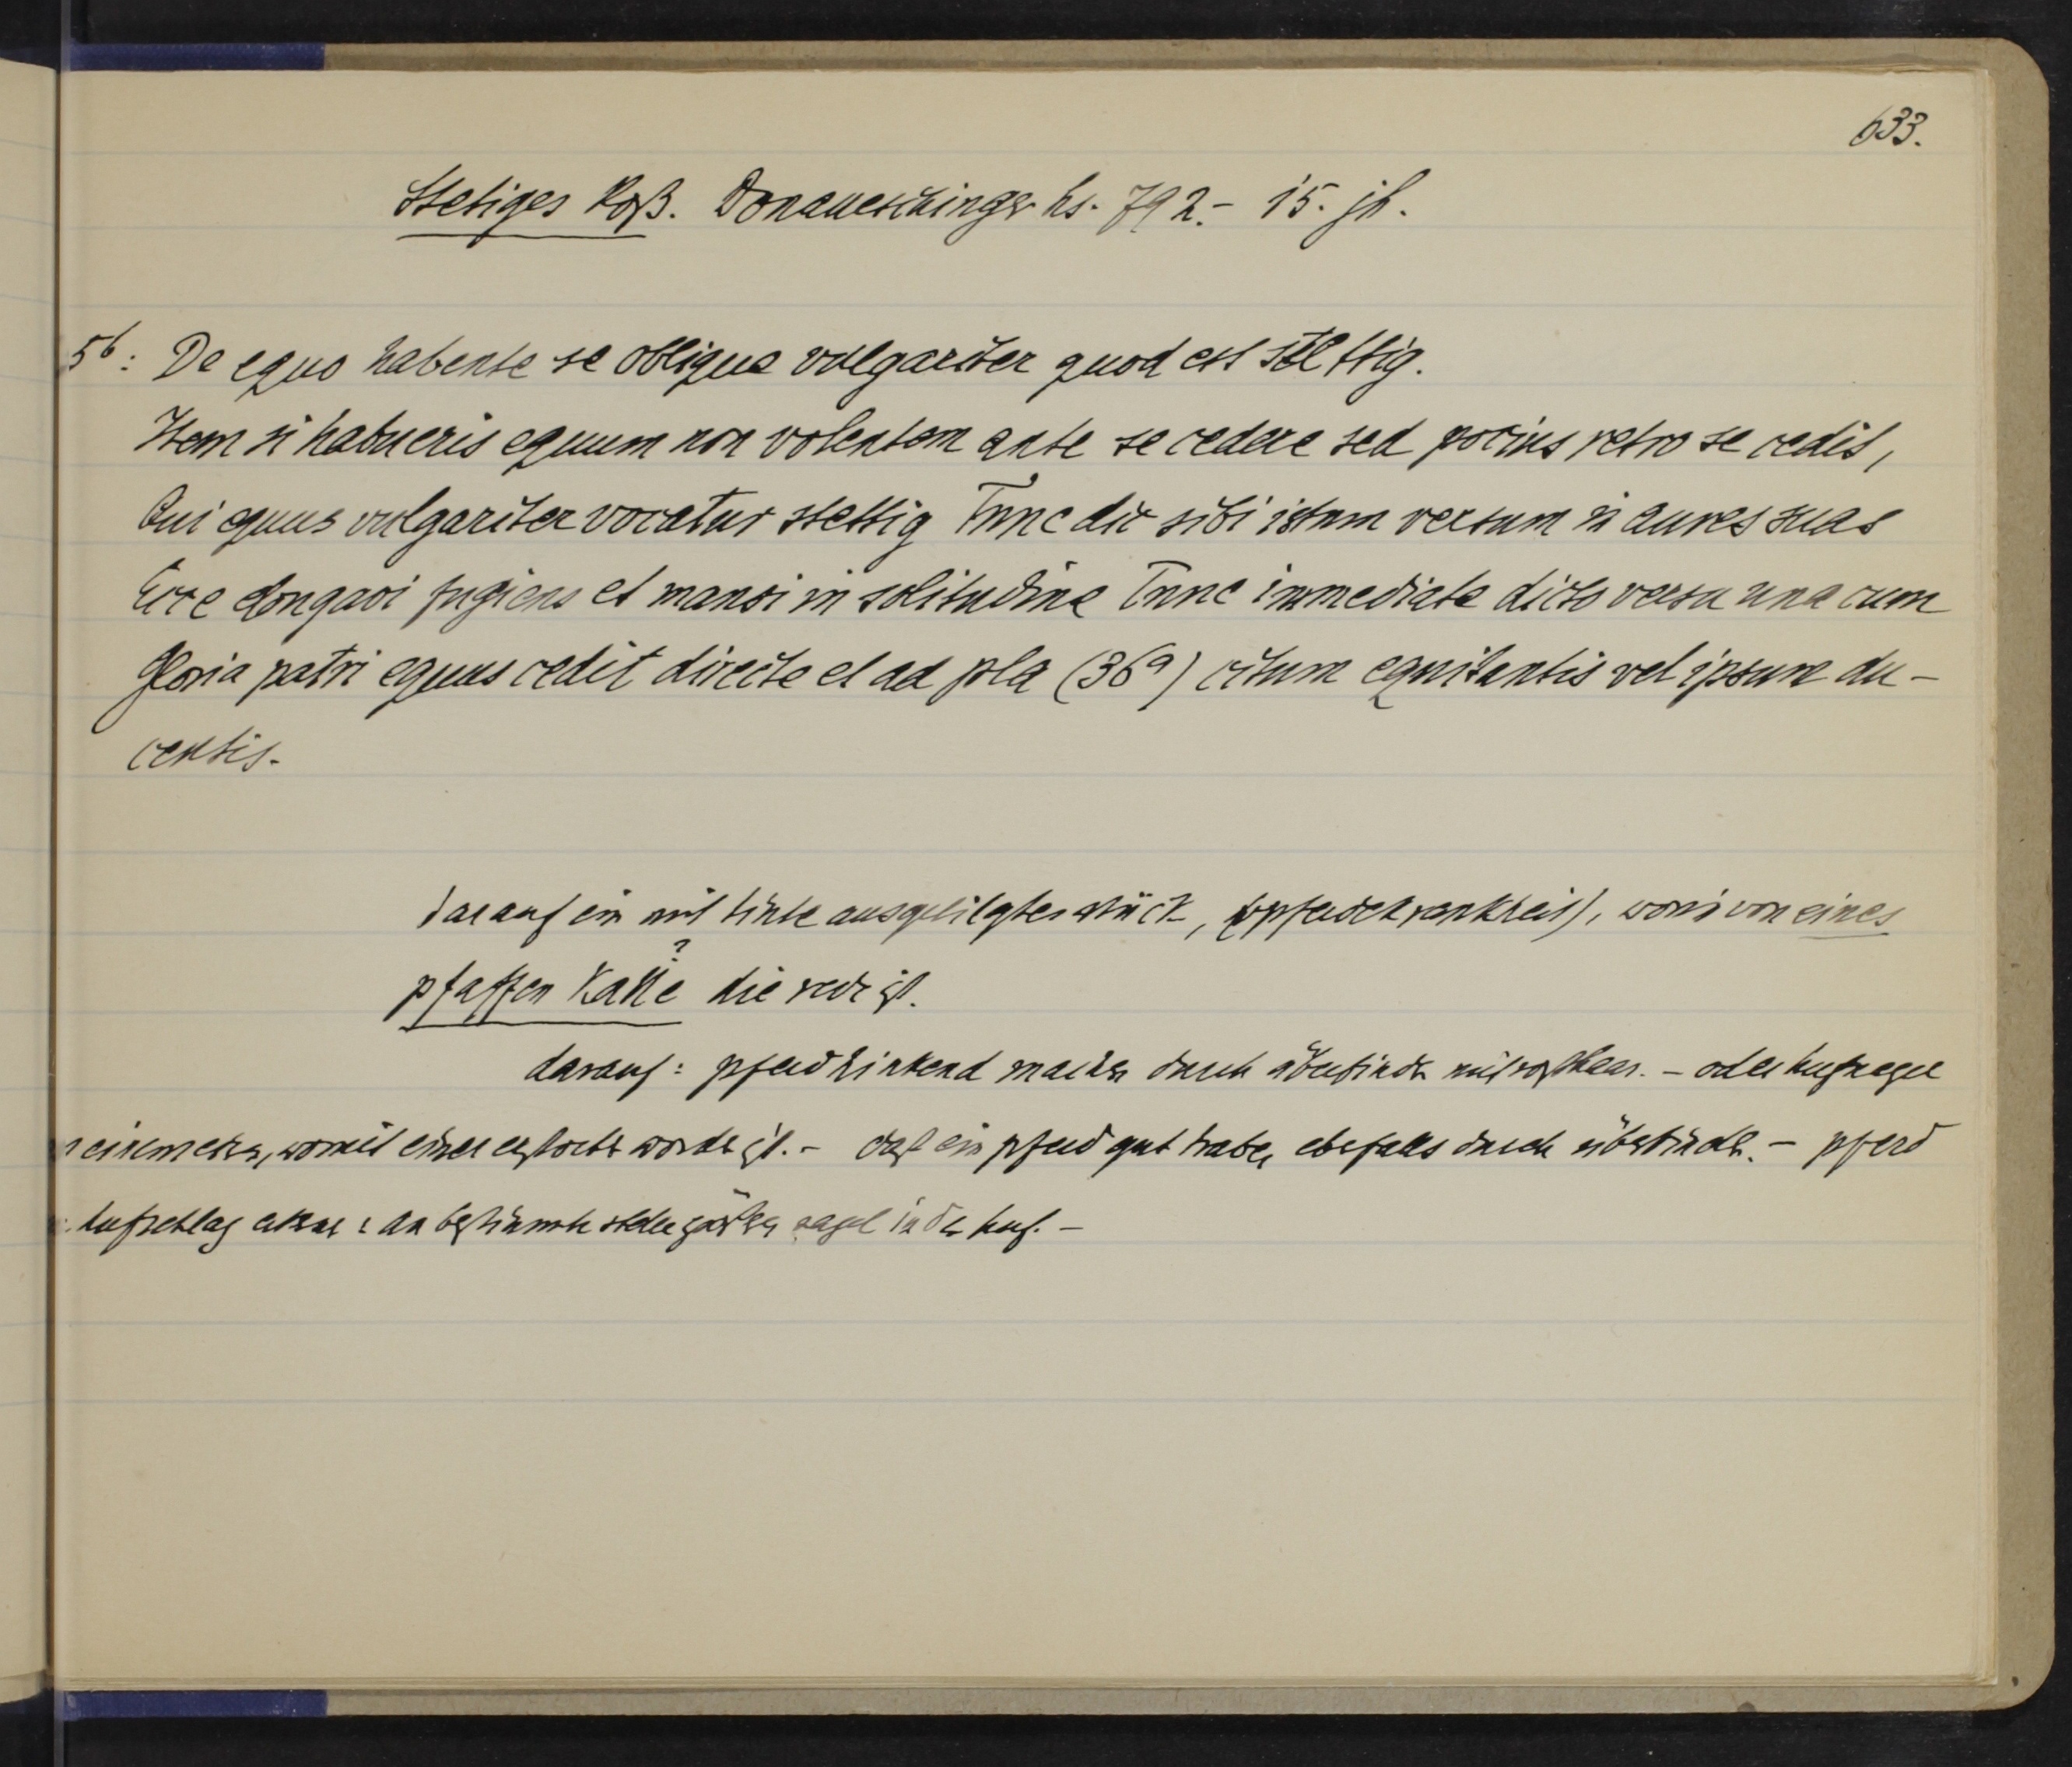 633.
Stetiges Roß. Donaueschinger hs. 792.- 15. jh.
5b: De equo habente se oblique vulgariter quod est stettig.
Item si habueris equum non volentem ante se cedere sed pocius retro se cedit,
Qui equus vulgariter vocatur stettig Tunc dic sibi istum versum in aures suas
Ecce elongavi fugiens et mansi in solitudine Tunc immediate dicto versu una cum
Gloria patri equus cedit directe et ad pla (36a) citum equitantis vel ipsum du-
centis.
darauf ein mit tinte ausgetilgtes stück, (pferdekrankheit), worin von eines
pfaffen Kathe? die rede ist.
darauf: pferd hinkend machen durch überbinden mit roßhaar. - oder hufnagel
einem messer, womit einer erstochen worden ist. - daß ein pferd gut trabe, ebenfalls durch überbinden. - pferd
hufschlag : an bestimmte stelle nagel in den huf. -